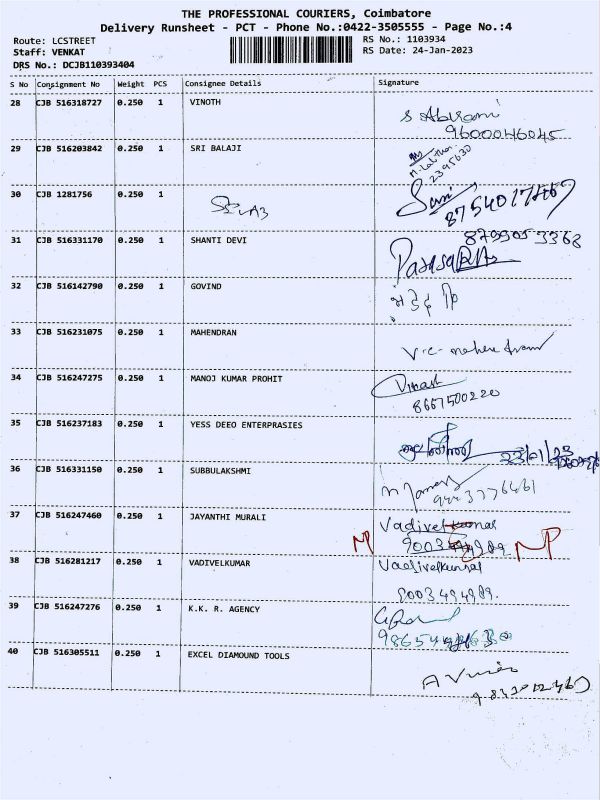 THE PROFESSIONAL COURIERS, Coimbatore
Delivery Runsheet - PCT - Phone No.:0422-3505555 - Page No.:4
Route: LCSTREET
RS No.: 1103934
Staff: VENKAT
RS Date: 24-Jan-2023
DRS No.: DCJB110393404
S No Consignment No Weight PCS Consignee Details Signature
28 CJB 516318727 0.250 1 VINOTH
9600046045
29 CJB 516203842 0.250 1 SRI BALAJI
2395630
30 CJB 1281756 0.250 1
31 CJB 516331170 0.250 1 SHANTI DEVI
8799053368
32 CJB 516142790 0.250 1 GOVIND
33 CJB 516231075 0.250 1 MAHENDRAN
34 CJB 516247275 0.250 1 MANOJ KUMAR PROHIT
8667500220
35 CJB 516237183 0.250 1 YESS DEEO ENTERPRASIES
23/01/23
36 CJB 516331150 0.250 1 SUBBULAKSHMI
9443776461
37 CJB 516247460 0.250 1 JAYANTHI MURALI Vadivelkumar
NP NP
38 CJB 516281217 0.250 1 VADIVELKUMAR Vadivelkumar
9003494989.
39 CJB 516247276 0.250 1 K.K. R. AGENCY
40 CJB 516305511 0.250 1 EXCEL DIAMOUND TOOLS